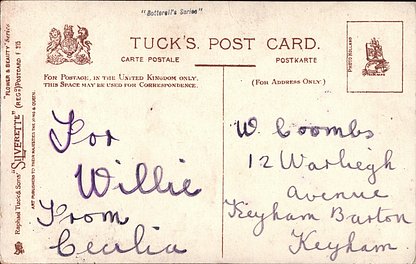 "Botterell's Series"
TUCK'S. POST CARD.
CARTE POSTALE
POSTKARTE
FOR POSTAGE, IN THE UNITED KINGDOM ONLY,
THIS SPACE MAY BE USED FOR CORRESPONDENCE.
(FOR ADDRESS ONLY.)
For
Willie
From
Cecilia
W. Coombs
12 Warliegh
Avenue
Keyham Barton
Keyham
Raphael Tuck & Sons' "SILVERETTE" (REGD) POSTCARD
ART PUBLISHERS TO THEIR MAJESTIES THE KING & QUEEN.